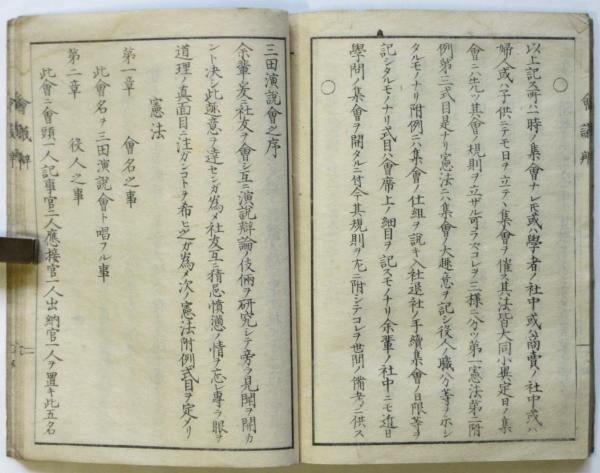 會議辨
○
以上記ス所ハ一時ノ集會ナレ𪜈或ハ學者ノ社中或ハ商賣ノ社中或ハ
婦人或ハ子供ニテモ日ヲ立テヽ集會ヲ催ス其法皆大同小異ナリ定日ノ集
會ニハ先ツ其會ノ規則ヲ立ザル可ラズコレヲ三樣ニ分ツ第一憲法第二附
例第三式目是ナリ憲法ニハ集會ノ大趣意ヲ記シ役人ノ職分等ヲ示シ
タルモノナリ附例ニハ集會ノ仕組ヲ說キ入社退社ノ手續集會ノ日限等ヲ
記シタルモノナリ式目ハ會席上ノ細目ヲ記スモノナリ余輩ノ社中ニモ近日
學問ノ集會ヲ開タルニ付今其規則ヲ左ニ附シテコレヲ世間ノ備考ニ供ス
○
三田演說會之序
余輩茲ニ社友ヲ會シ互ニ演說辯論ノ伎倆ヲ研究シテ旁ラ見聞ヲ開カ
ント決シ此趣意ヲ達センガ爲メ社友互ニ猜忌憤懣ノ情ヲ忘レ專ラ眼ヲ
道理ノ眞面目ニ注ガンコトヲ希ヒ之ガ爲メ次ノ憲法附例式目ヲ定メリ
憲法
第一章 會名之事
此會ノ名ヲ三田演說會ト唱フル事
第二章 役人之事
此會ニ會頭一人記事官二人應接官一人出納官一人ヲ置キ此五名
會議辨